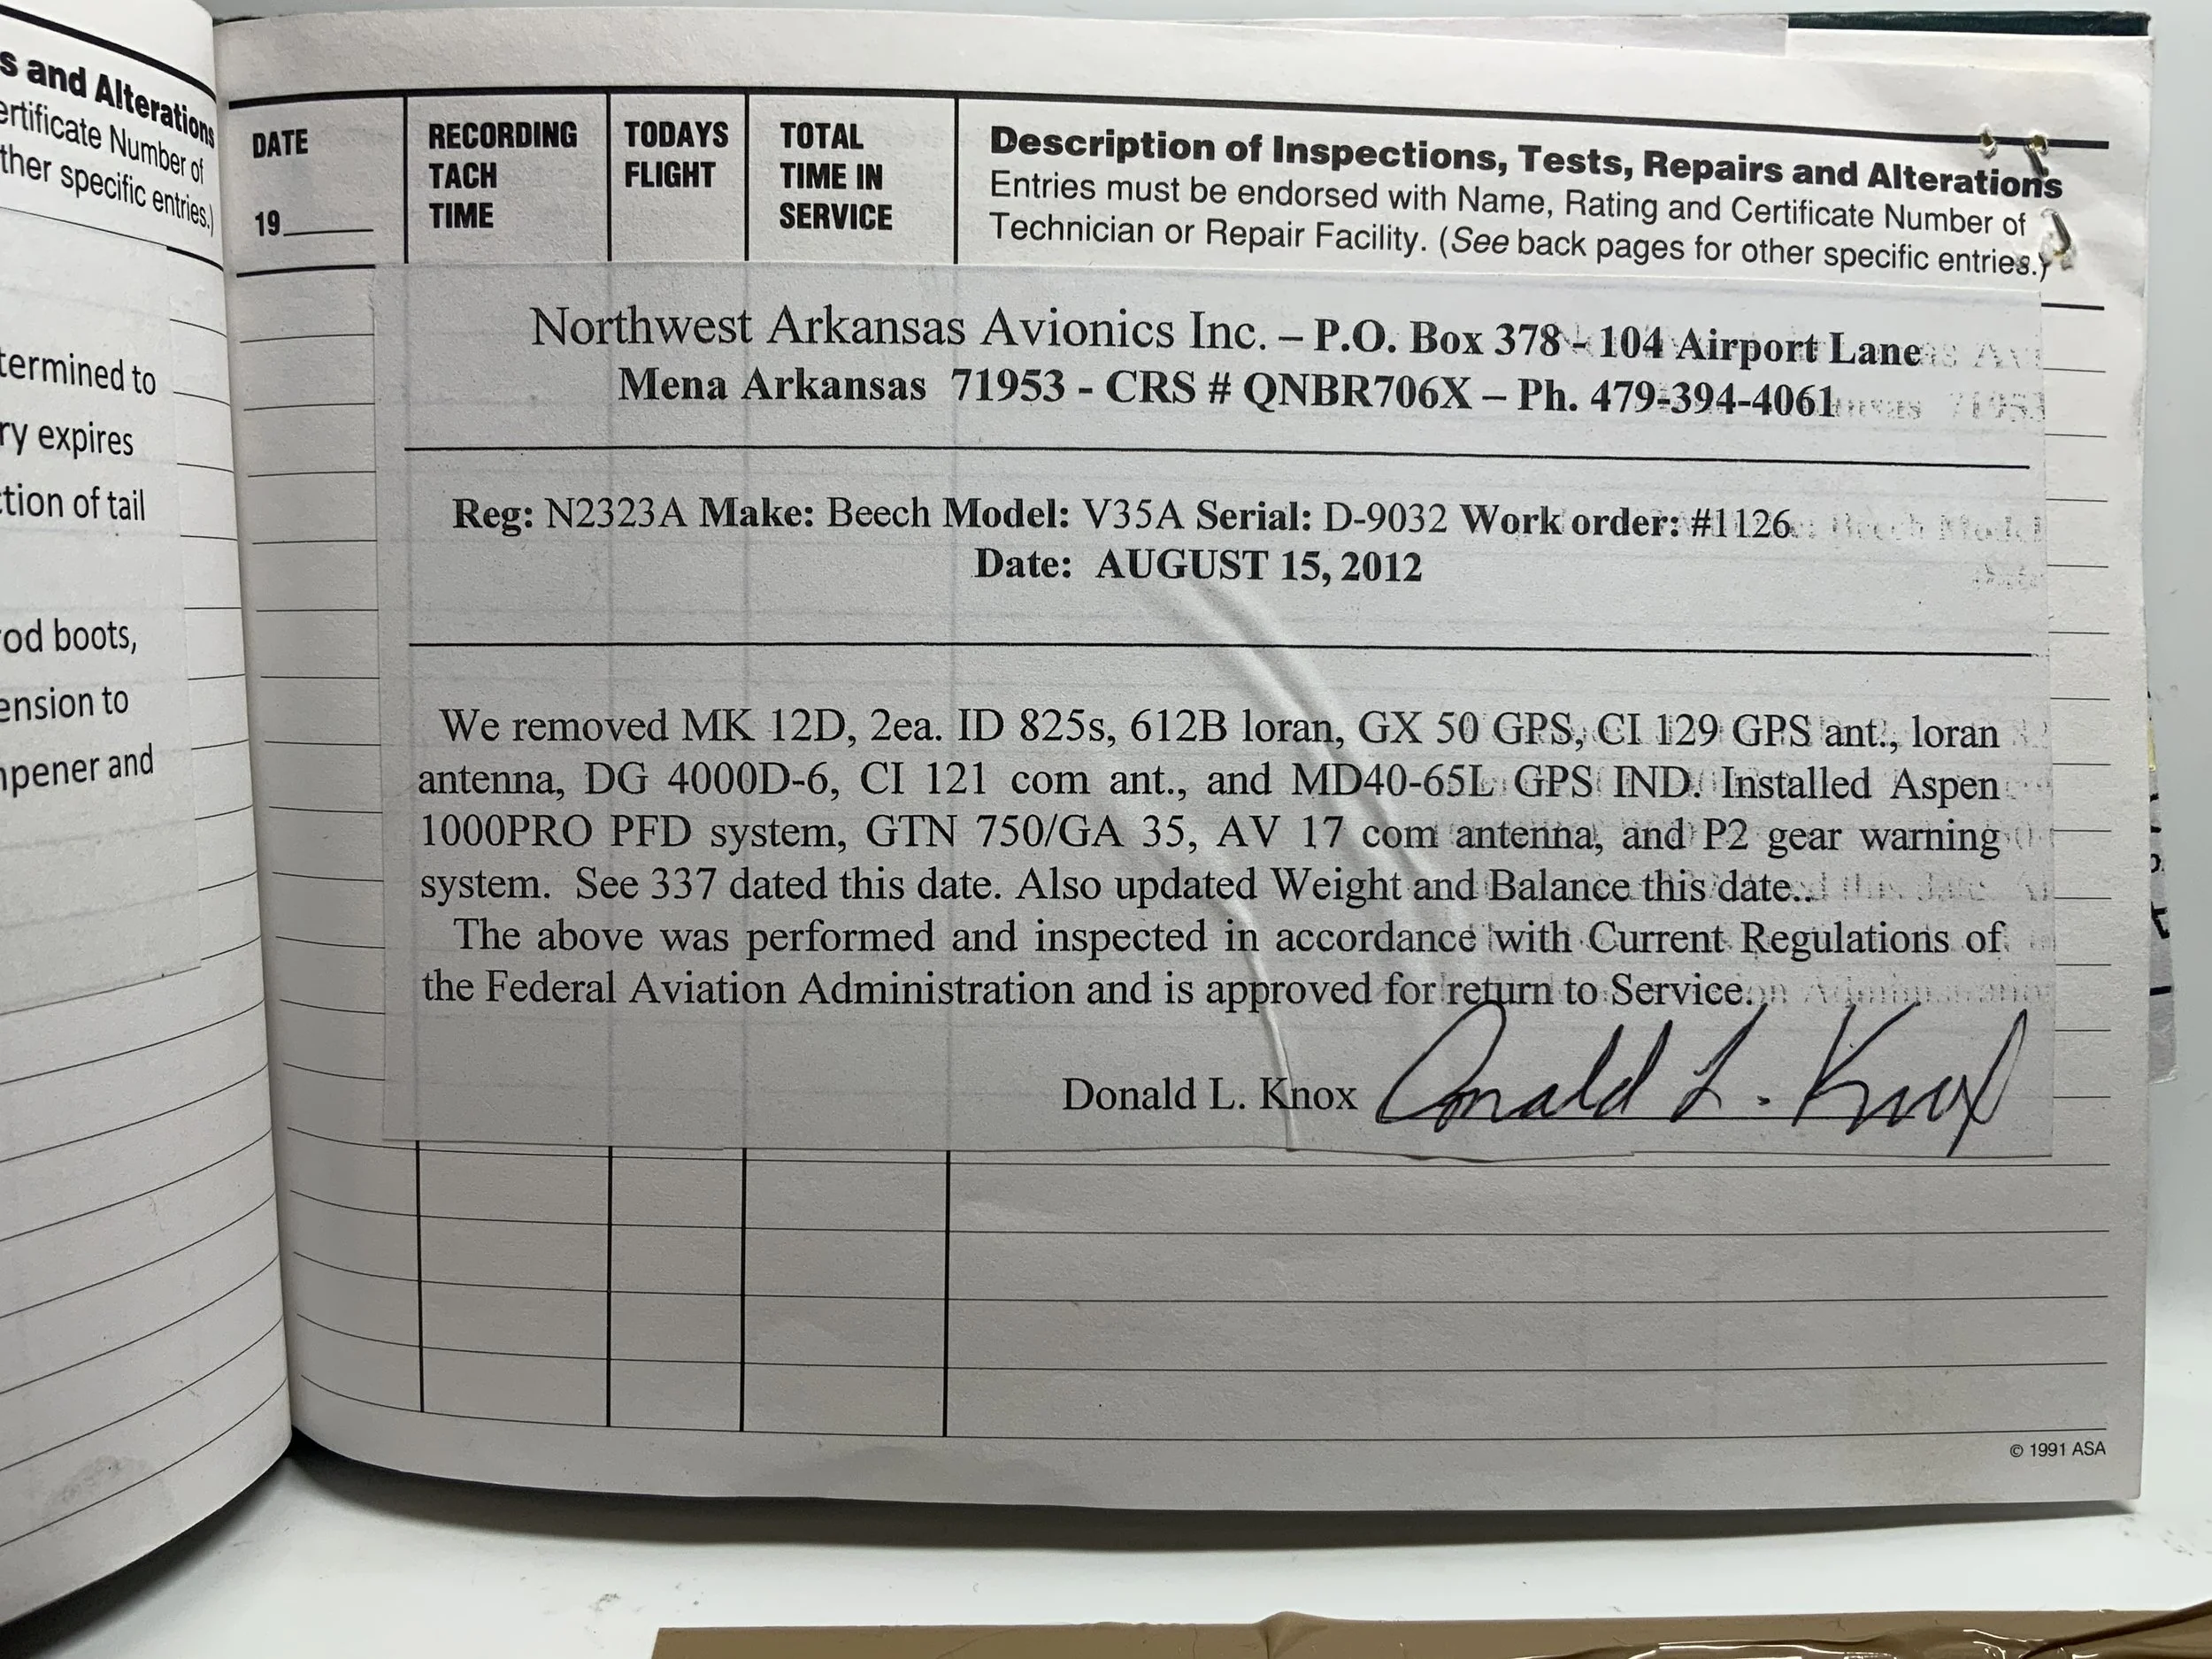 s and Alterations
ertificate Number of
ther specific entries.)
termined to
ry expires
ction of tail
rod boots,
ension to
mpener and
DATE
19
RECORDING
TACH
TIME
TODAYS
FLIGHT
TOTAL
TIME IN
SERVICE
Description of Inspections, Tests, Repairs and Alterations
Entries must be endorsed with Name, Rating and Certificate Number of
Technician or Repair Facility. (See back pages for other specific entries.)
Northwest Arkansas Avionics Inc. – P.O. Box 378 - 104 Airport Lane
Mena Arkansas 71953 - CRS # QNBR706X – Ph. 479-394-4061
Reg: N2323A Make: Beech Model: V35A Serial: D-9032 Work order: #1126
Date: AUGUST 15, 2012
We removed MK 12D, 2ea. ID 825s, 612B loran, GX 50 GPS, CI 129 GPS ant., loran
antenna, DG 4000D-6, CI 121 com ant., and MD40-65L GPS IND. Installed Aspen
1000PRO PFD system, GTN 750/GA 35, AV 17 com antenna, and P2 gear warning
system. See 337 dated this date. Also updated Weight and Balance this date..
The above was performed and inspected in accordance with Current Regulations of
the Federal Aviation Administration and is approved for return to Service.
Donald L. Knox Donald L. Knox
© 1991 ASA